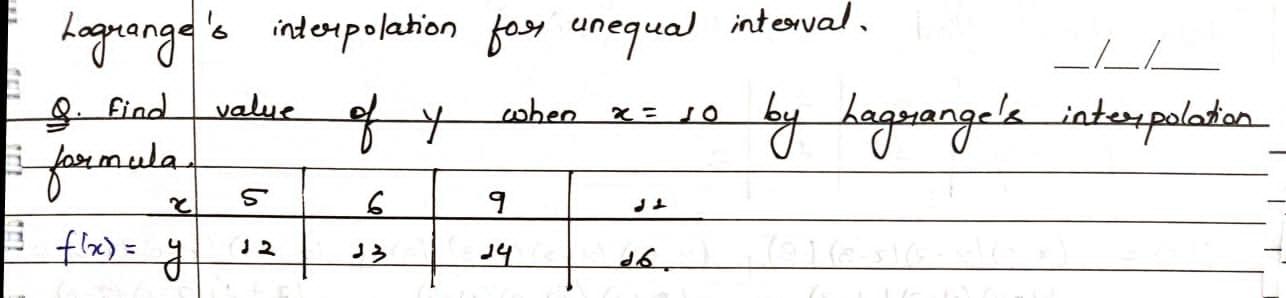 Lagrange's interpolation for unequal interval.
_/_/_
Q. Find value of y when x = 10 by Lagrange's interpolation
formula.
x 5 6 9 11
f(x) = y 12 13 14 16.